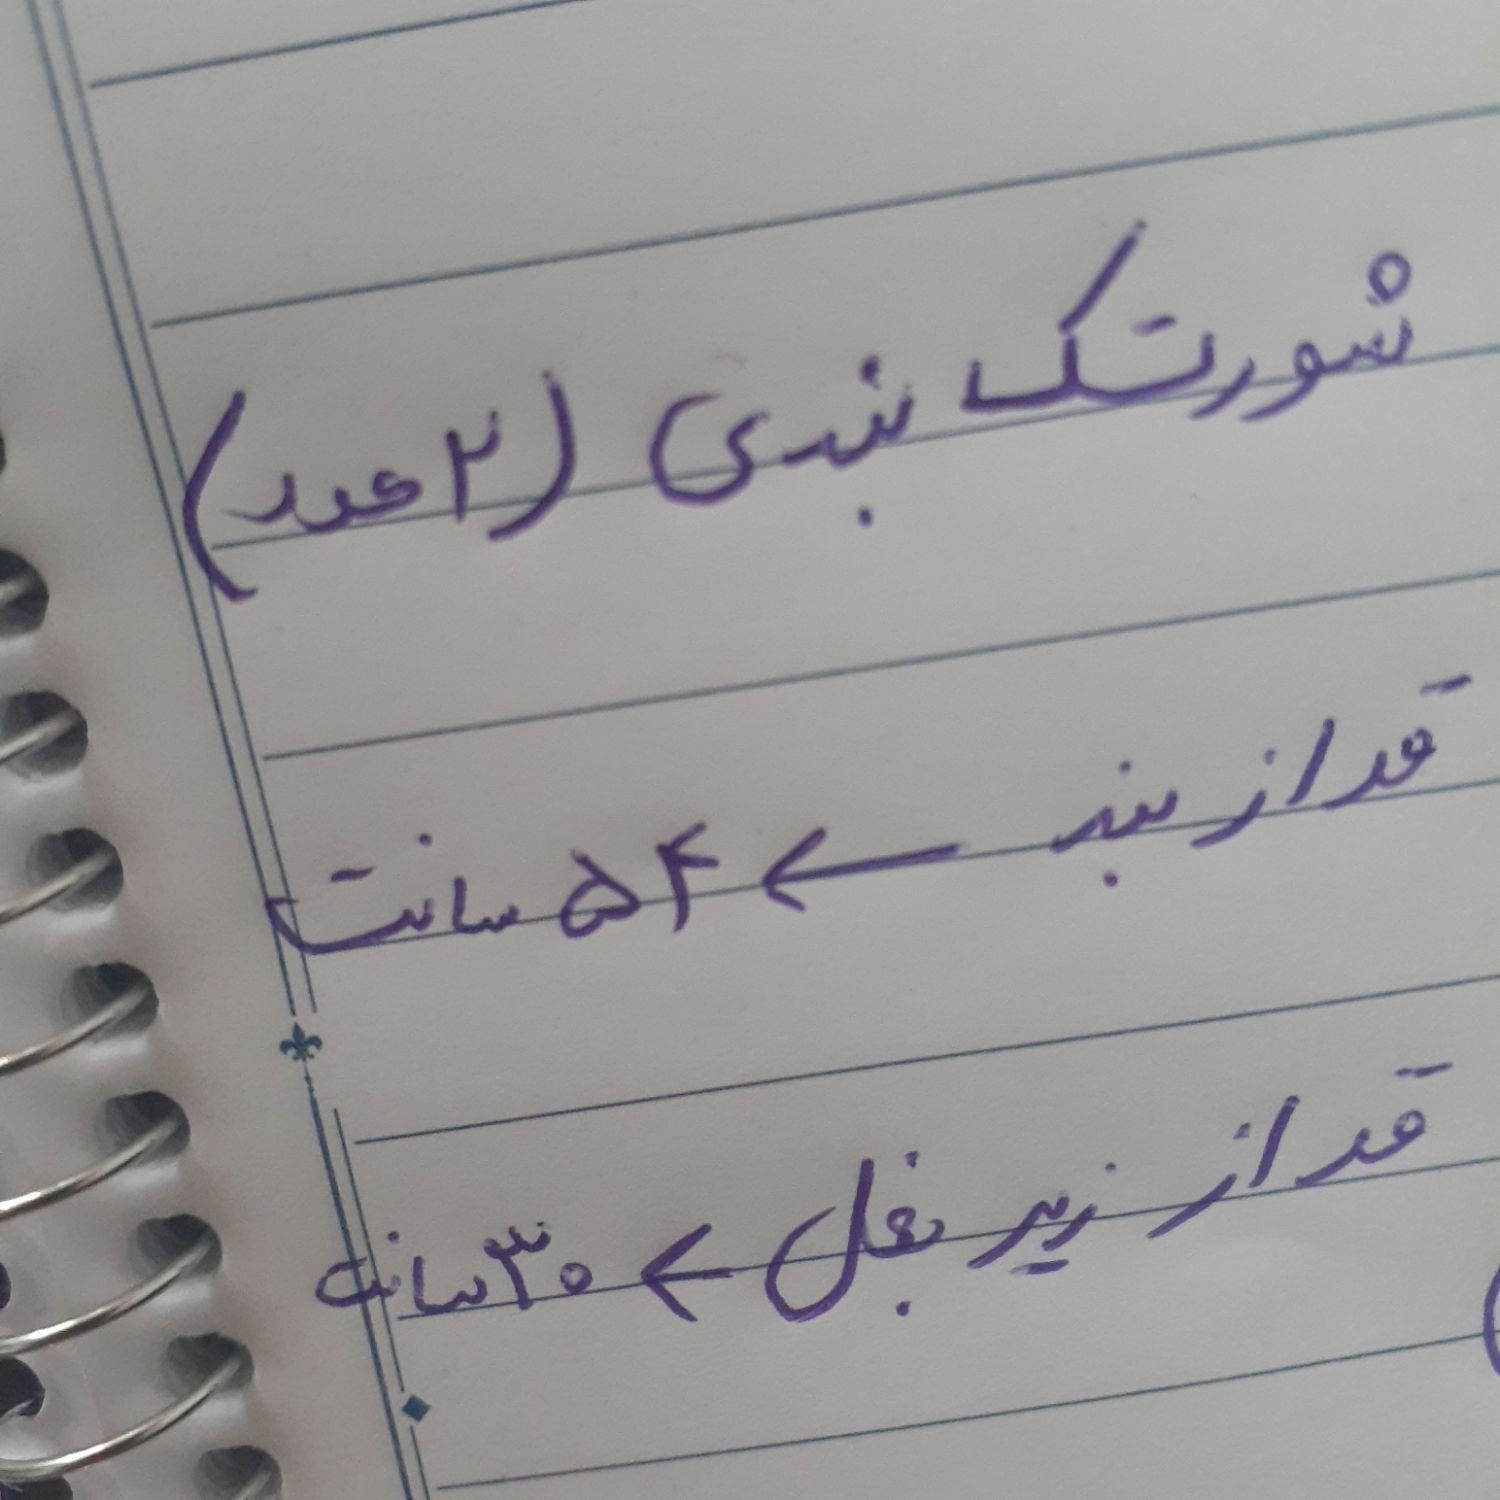 شورتک بندی (۲ عدد)
قد از بند ← ۵۴ سانت
قد از زیر بغل ← ۳۰ سانت